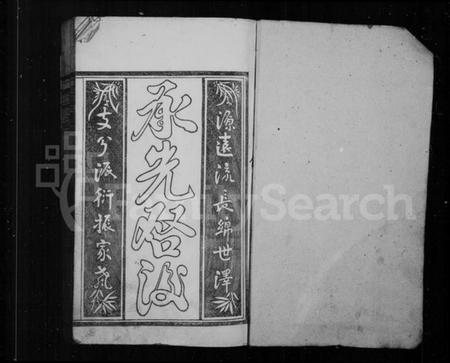 源遠流長綿世澤
承先啓後
支分派衍振家聲
FamilySearch